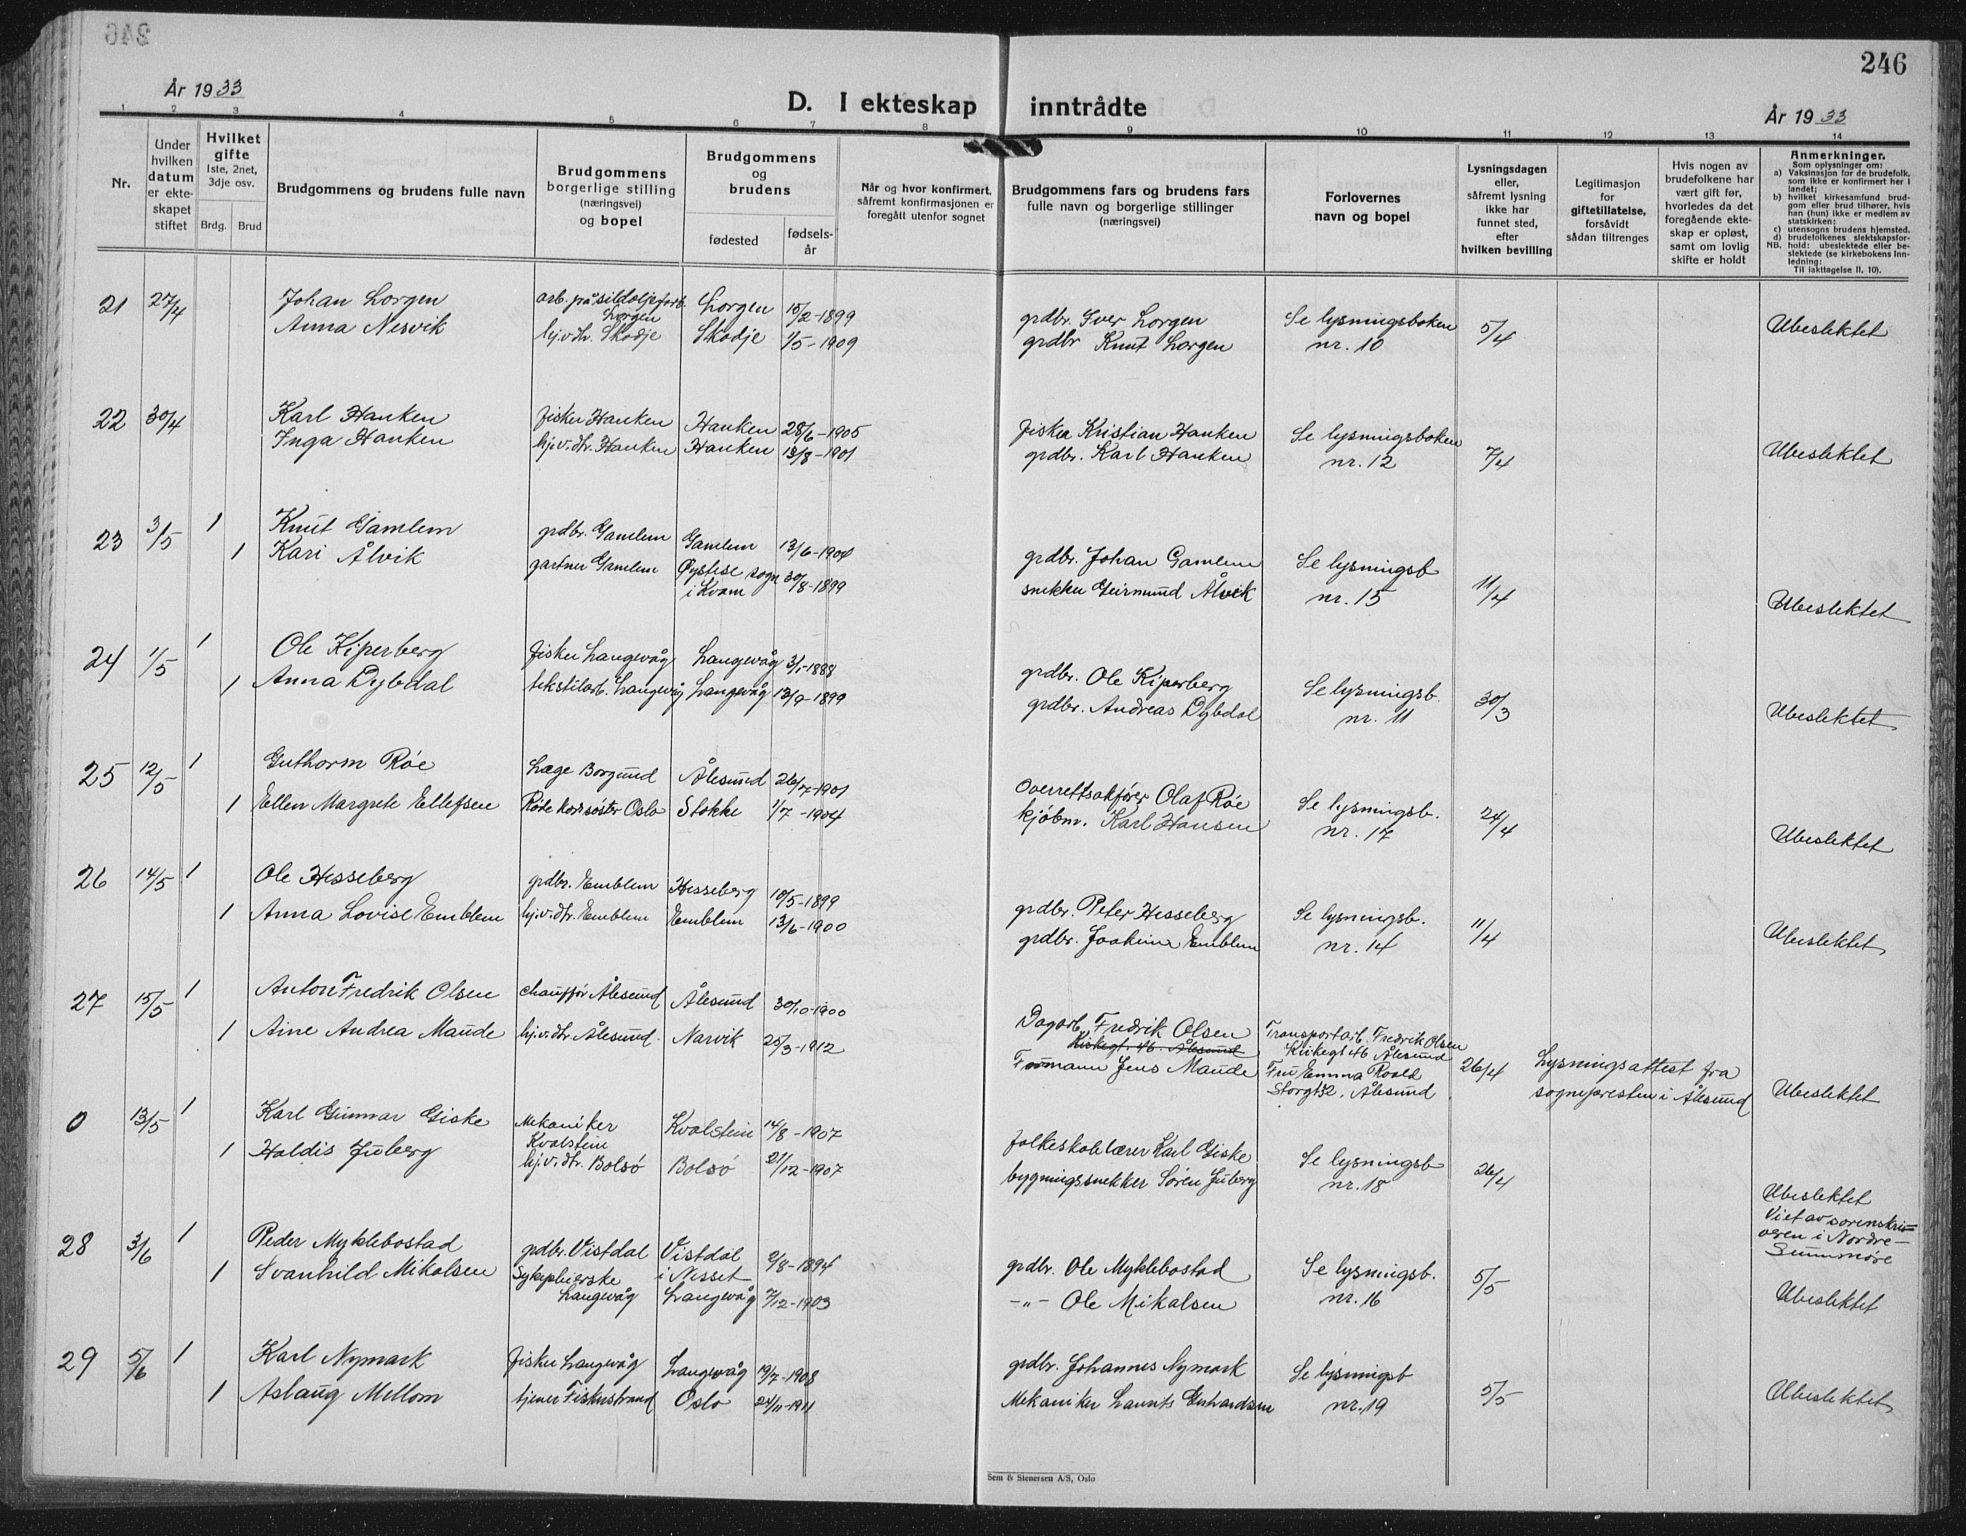 246
År 1933
D. I ekteskap inntrådte
År 1933
1 2 3 4 5 6 7 8 9 10 11 12 13 14
Nr.
Under hvilken datum er ekteskapet stiftet
Hvilket gifte 1ste, 2net, 3dje osv.
Brdg. Brud
Brudgommens og brudens fulle navn
Brudgommens borgerlige stilling (næringsvei) og bopel
Brudgommens og brudens
fødested
fødselsår
Når og hvor konfirmert, såfremt konfirmasjonen er foregått utenfor sognet
Brudgommens fars og brudens fars fulle navn og borgerlige stillinger (næringsvei)
Forlovernes navn og bopel
Lysningsdagen eller, såfremt lysning ikke har funnet sted, efter hvilken bevilling
Legitimasjon for giftetillatelse, forsåvidt sådan tiltrenges
Hvis nogen av brudefolkene har vært gift før, hvorledes da det foregående ekteskap er opløst, samt om lovlig skifte er holdt
Anmerkninger.
Som oplysninger om:
a) Vaksinasjon for de brudefolk, som ikke er konfirmert her i landet;
b) hvilket kirkesamfund brudgom eller brud tilhører, hvis han (hun) ikke er medlem av statskirken;
c) utensogns brudens hjemsted.
d) brudefolkenes slektskapsforhold: ubeslektede eller beslektede (se kirkebokens innledning:
NB.
Til iakttagelse II. 10).
21 27/4 Johan Lorgen arb. på sildoljefarb. Lorgen Lorgen 15/2-1899 grdbr. Iver Lorgen Se lysningsboken 5/4 Ubeslektet
Anna Nesvik hj.v.dtr. Skodje Skodje 1/5-1909 grdbr Knut Lorgen nr. 10
22 30/4 Karl Hanken fisker Hanken Hanken 28/6-1905 fisker Kristian Hanken Se lysningsboken 7/4 Ubeslektet
Inga Hanken hj.v.dtr. Hanken Hanken 13/8-1901 grdbr. Karl Hanken nr. 12
23 3/5 1 Knut Gamlem grdbr. Gamlem Gamlem 13/6-1904 grdbr. Johan Gamlem Se lysningsb 11/4 Ubeslektet
1 Kari Ålvik gartner Gamlem Øystese sogn i Kvam 30/8-1899 snekker Geirmund Ålvik nr. 15
24 1/5 1 Ole Kiperberg fisker Langevåg Langevåg 3/1-1888 grdbr. Ole Kiperberg Se lysningsb. 30/3 Ubeslektet
1 Anna Dybdal tekstilarb. Langevåg Langevåg 13/9-1899 grdbr. Andreas Dybdal nr. 11
25 12/5 1 Guthorm Røe Læge Borgund Ålesund 26/7-1901 Overrettsakfører Olaf Røe Se lysningsb. 24/4 Ubeslektet
1 Ellen Margrete Ellefsen Røde korssøster Oslo Stokke 1/7-1904 kjøbm. Karl Hansen nr. 17
26 14/5 1 Ole Hesseberg grdbr. Emblem Hesseberg 10/5-1899 grdbr. Peter Hesseberg Se lysningsb. 11/4 Ubeslektet
1 Anna Lovise Emblem hj.v.dtr. Emblem Emblem 13/6-1900 grdbr. Joakim Emblem nr. 14
27 15/5 1 Anton Fredrik Olsen chauffør Ålesund Ålesund 30/10-1900 Dagarb. Fredrik Olsen Kirkegt. 46. Ålesund Transportarb. Fredrik Olsen Kirkegt 46 Ålesund 26/4 Lysningsattest fra sognepresten i Ålesund Ubeslektet
1 Aine Andrea Maude hj.v.dtr Ålesund. Narvik 25/3-1912 Formann Jens Maude Fru Emma Roald Storgt 32. Ålesund
0 13/5 1 Karl Gunnar Giske Mekaniker Kvalstein Kvalstein 14/8-1907 folkeskolelærer Karl Giske Se lysningsb 26/4 Ubeslektet
1 Haldis Juberg hj.v.dtr. Bolsø Bolsø 21/12-1907 bygningssnekker Søren Juberg nr. 18 Viet av sorenskriveren i Nordre-Sunnmøre
28 3/6 1 Peder Myklebostad grdbr. Vistdal Vistdal i Nesset 9/8-1894 grdbr. Ole Myklebostad Se lysningsb. 5/5 Ubeslektet
1 Svanhild Mikalsen Sykepleierske Langevåg Langevåg 7/12-1903 -"- Ole Mikalsen nr. 16
29 5/6 1 Karl Nymark fisker Langevåg Langevåg 19/7-1908 grdbr. Johannes Nymark Se lysningsb 5/5 Ubeslektet
1 Aslaug Mellom tjener Fiskerstrand Oslo 24/11-1911 Mekaniker nr. 19
Sem & Stenersen A/S, Oslo